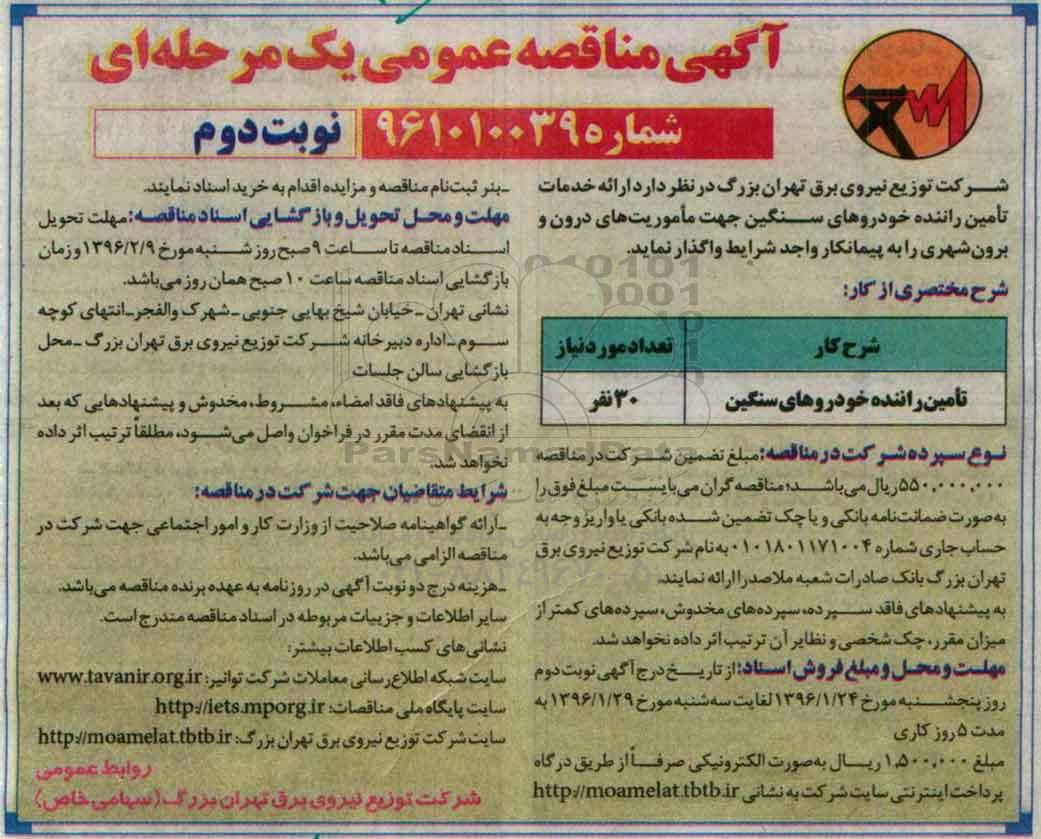 آگهی مناقصه عمومی یک مرحله‌ای
شماره ۹۶۱۰۱۰۰۳۹
نوبت دوم
شرکت توزیع نیروی برق تهران بزرگ در نظر دارد ارائه خدمات
تأمین راننده خودروهای سنگین جهت مأموریت‌های درون و
برون‌شهری را به پیمانکار واجد شرایط واگذار نماید.
شرح مختصری از کار:
شرح کار	تعداد مورد نیاز
تأمین راننده خودروهای سنگین	۳۰ نفر
نوع سپرده شرکت در مناقصه: مبلغ تضمین شرکت در مناقصه
۵۵۰،۰۰۰،۰۰۰ ریال می‌باشد، مناقصه‌گران می‌بایست مبلغ فوق را
به‌صورت ضمانت‌نامه بانکی و یا چک تضمین شده بانکی یا واریز وجه به
حساب جاری شماره ۰۱۰۱۸۰۱۱۷۱۰۰۴ به نام شرکت توزیع نیروی برق
تهران بزرگ بانک صادرات شعبه ملاصدرا ارائه نمایند.
به پیشنهادهای فاقد سپرده، سپرده‌های مخدوش، سپرده‌های کمتر از
میزان مقرر، چک شخصی و نظایر آن ترتیب اثر داده نخواهد شد.
مهلت و محل و مبلغ فروش اسناد: از تاریخ درج آگهی نوبت دوم
روز پنجشنبه مورخ ۱۳۹۶/۱/۲۴ لغایت سه‌شنبه مورخ ۱۳۹۶/۱/۲۹ به
مدت ۵ روز کاری
مبلغ ۱،۵۰۰،۰۰۰ ریال به‌صورت الکترونیکی صرفاً از طریق درگاه
پرداخت اینترنتی سایت شرکت به نشانی http://moamelat.tbtb.ir
ـ بنر ثبت‌نام مناقصه و مزایده اقدام به خرید اسناد نمایند.
مهلت و محل تحویل و بازگشایی اسناد مناقصه: مهلت تحویل
اسناد مناقصه تا ساعت ۹ صبح روز شنبه مورخ ۱۳۹۶/۲/۹ و زمان
بازگشایی اسناد مناقصه ساعت ۱۰ صبح همان روز می‌باشد.
نشانی تهران ـ خیابان شیخ بهایی جنوبی ـ شهرک والفجر ـ انتهای کوچه
سوم ـ اداره دبیرخانه شرکت توزیع نیروی برق تهران بزرگ ـ محل
بازگشایی سالن جلسات
به پیشنهادهای فاقد امضاء، مشروط، مخدوش و پیشنهادهایی که بعد
از انقضای مدت مقرر در فراخوان واصل می‌شود، مطلقاً ترتیب اثر داده
نخواهد شد.
شرایط متقاضیان جهت شرکت در مناقصه:
ـ ارائه گواهینامه صلاحیت از وزارت کار و امور اجتماعی جهت شرکت در
مناقصه الزامی می‌باشد.
ـ هزینه درج دو نوبت آگهی در روزنامه به عهده برنده مناقصه می‌باشد.
سایر اطلاعات و جزییات مربوطه در اسناد مناقصه مندرج است.
نشانی‌های کسب اطلاعات بیشتر:
سایت شبکه اطلاع‌رسانی معاملات شرکت توانیر: www.tavanir.org.ir
سایت پایگاه ملی مناقصات: http://iets.mporg.ir
سایت شرکت توزیع نیروی برق تهران بزرگ: http://moamelat.tbtb.ir
روابط عمومی
شرکت توزیع نیروی برق تهران بزرگ (سهامی خاص)
ParsNamadData